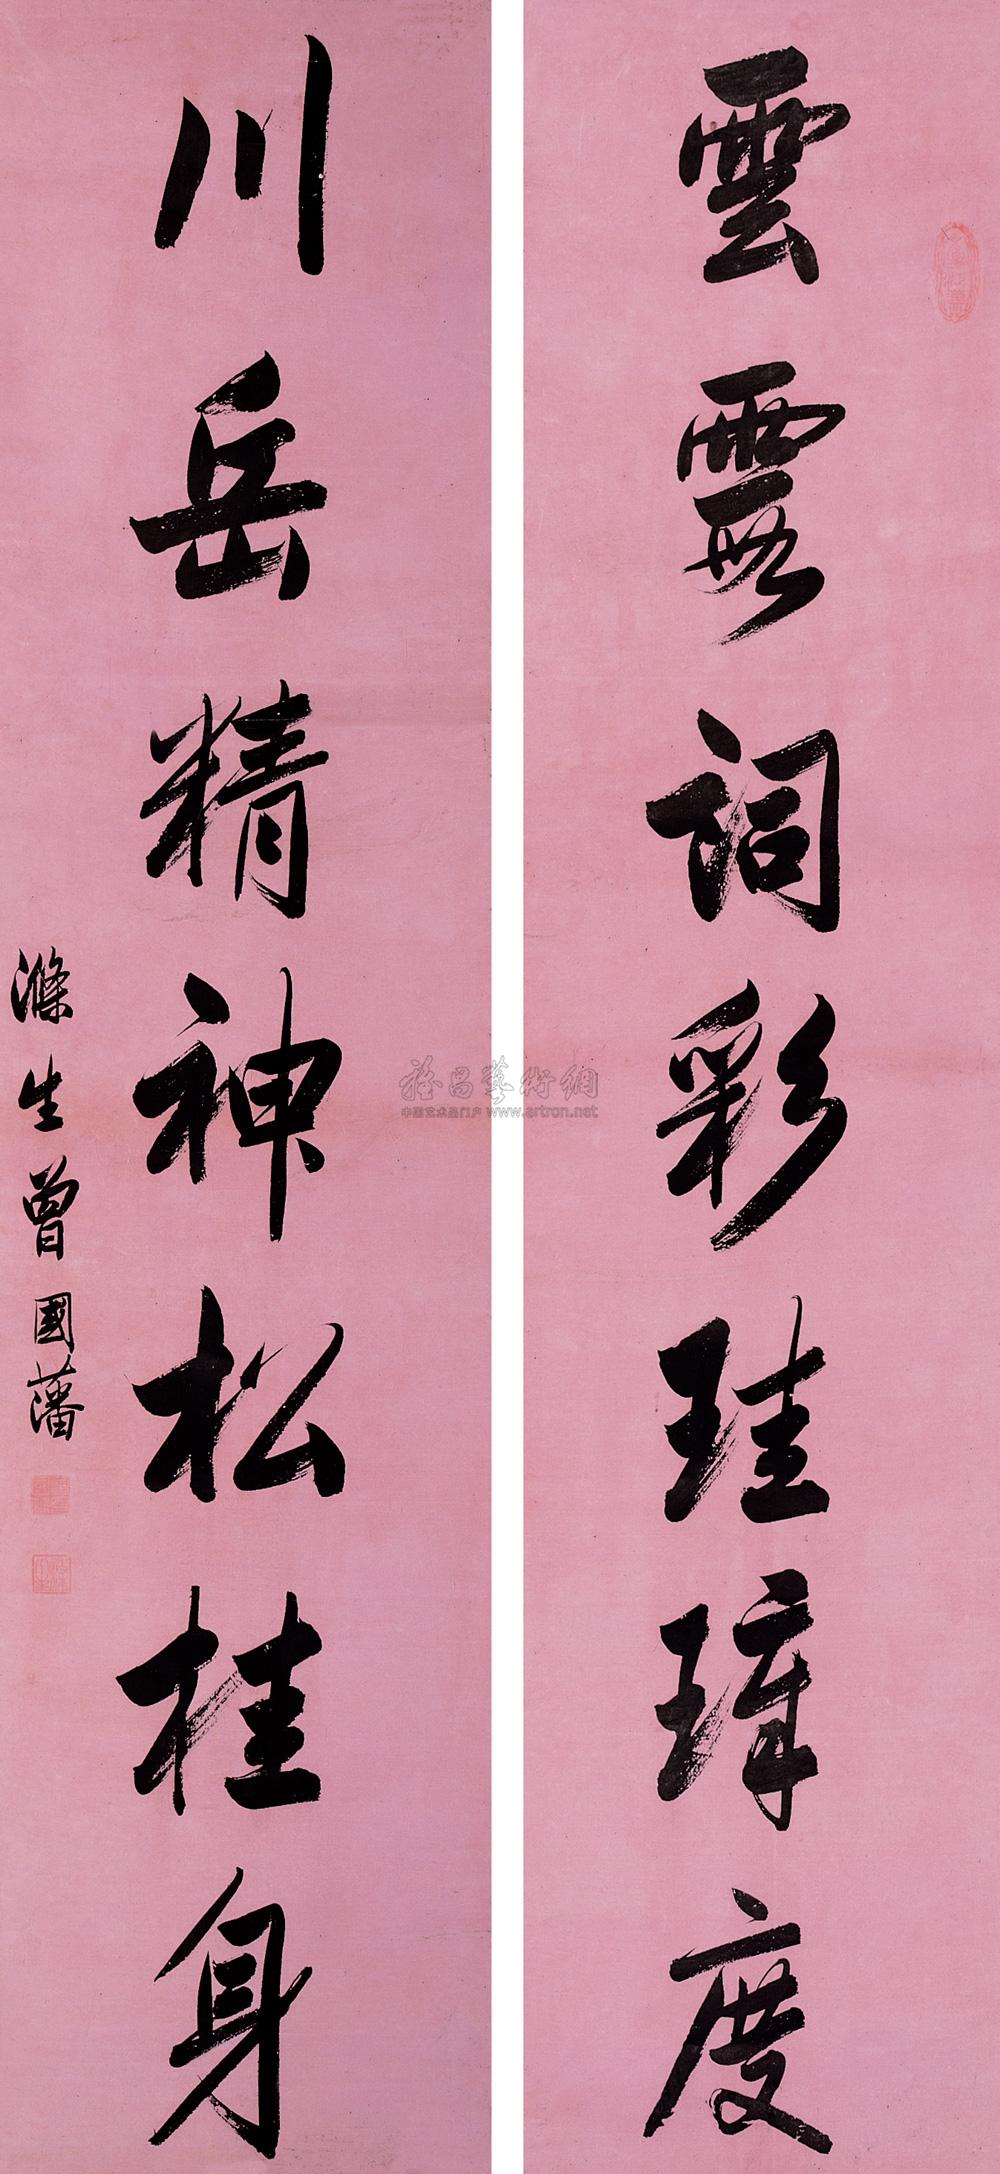 雲霞詞彩珪璋度
川岳精神松桂身
滌生曾國藩
雅昌藝術網
中国艺术品门户 www.artron.net